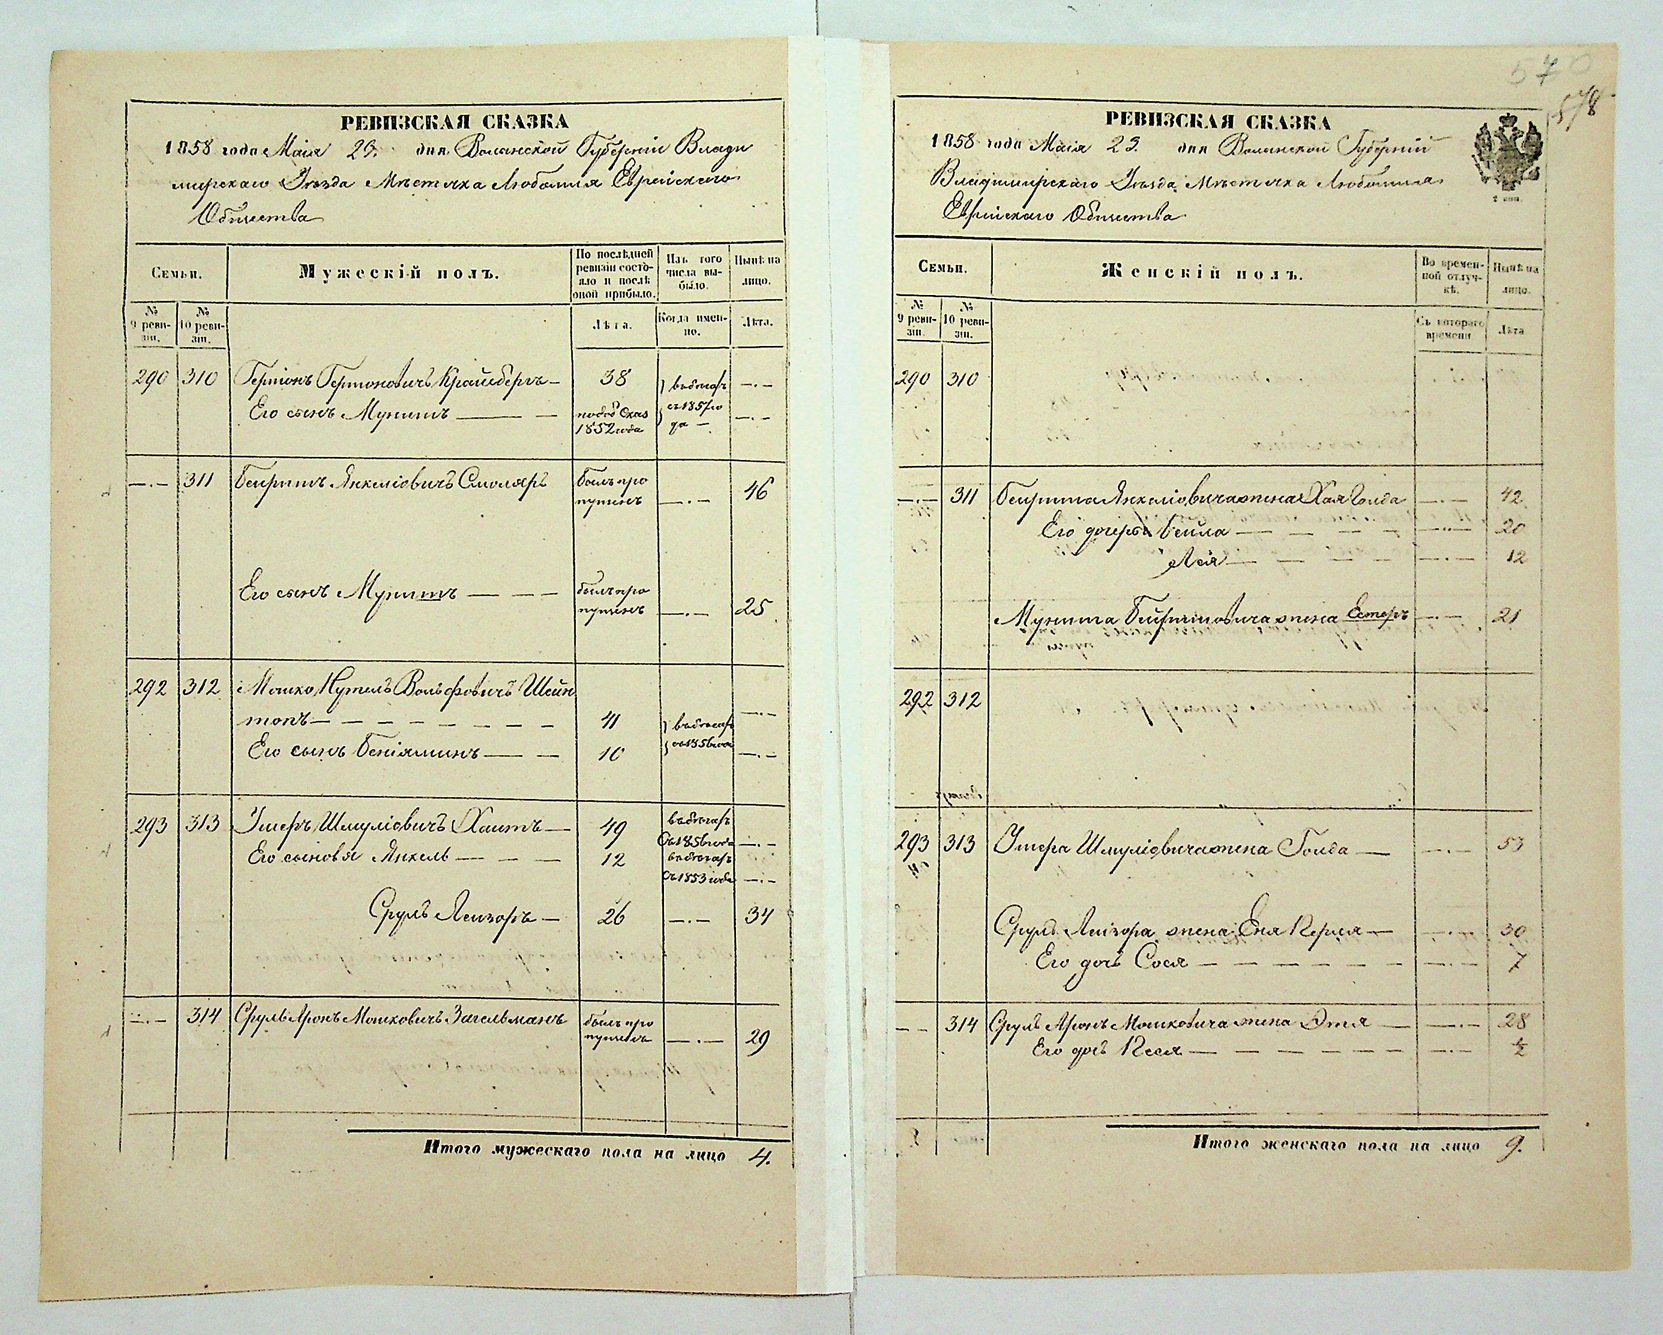 РЕВИЗСКАЯ СКАЗКА
1858 года Маія 23. дня Волынской Губерніи Влади
мирскаго Уѣзда Мѣстечка Любомля Еврейскаго
Общества
Семьи.
Мужескій полъ.
По послѣдней ревизіи состояло и послѣ оной прибыло.
Изъ того числа выбыло.
Нынѣ на лицо.
№ 9 ревизіи.
№ 10 ревизіи.
Лѣта.
Когда именно.
Лѣта.
290 310 Гершонъ Гершоновичъ Крайзберъ — 38 въ бѣгахъ —.—
Его сынъ Мунишъ — — 1852 года съ 1857 го да — —.—
—.— 311 Бейришъ Янкеліовичъ Смоляръ былъ про пущенъ —.— 46
Его сынъ Мунишъ — — — былъ про пущенъ —.— 25
292 312 Мошко Нутель Вольфовичъ Шейн
топъ — — — — — — — 41 въ бѣгахъ —.—
Его сынъ Беніяминъ — — 10 съ 1856 года —.—
293 313 Умеръ Шмуліовичъ Хаитъ — 49 въ бѣгахъ съ 1856 года —.—
Его сыновья Янкель — — — 12 въ бѣгахъ съ 1853 года —.—
Сруль Лейзоръ — 26 —.— 34
—.— 314 Сруль Аронъ Мошковичъ Загельманъ былъ про пущенъ —.— 29
Итого мужескаго пола на лицо 4.
570
578
РЕВИЗСКАЯ СКАЗКА
1858 года Маія 23. дня Волынской Губерніи
Владимирскаго Уѣзда Мѣстечка Любомля
Еврейскаго Общества
Семьи.
Женскій полъ.
Во временной отлучкѣ.
Нынѣ на лицо.
№ 9 ревизіи.
№ 10 ревизіи.
Съ котораго времени
Лѣта
290 310
—.— 311 Бейриша Янкеліовича жена Хая Голда —.— 42
Его дочери Бейла — — — — —.— 20
Лея — — — — — —.— 12
Муниша Бейришовича жена Естеръ —.— 21
292 312
293 313 Умера Шмуліовича жена Голда — —.— 53
Сруль Лейзора жена Еня Перля — —.— 30
Его дочь Сося — — — — — — —.— 7
— — 314 Сруль Аронъ Мошковича жена Этя — —.— 28
Его дочь Песя — — — — — — —.— ½
Итого женскаго пола на лицо 9.